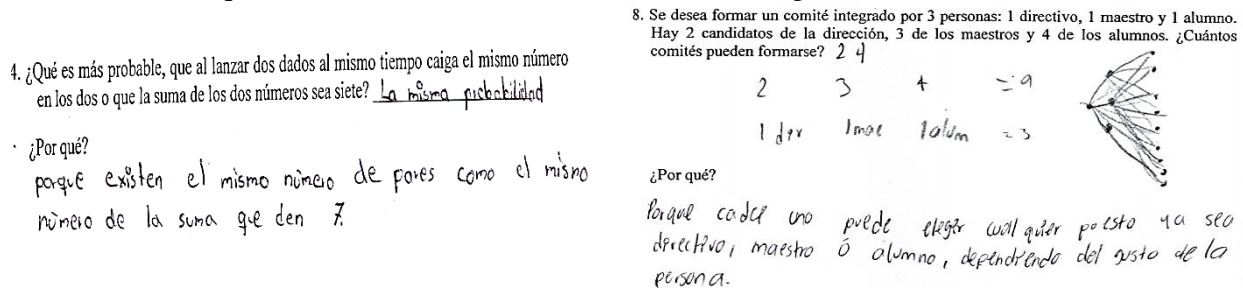 4. ¿Qué es más probable, que al lanzar dos dados al mismo tiempo caiga el mismo número
en los dos o que la suma de los dos números sea siete? La misma probabilidad
¿Por qué?
porque existen el mismo número de pares como el mismo
número de la suma que den 7.
8. Se desea formar un comité integrado por 3 personas: 1 directivo, 1 maestro y 1 alumno.
Hay 2 candidatos de la dirección, 3 de los maestros y 4 de los alumnos. ¿Cuántos
comités pueden formarse? 24
2 3 4 = 9
1 der 1 mae 1 alum = 3
¿Por qué?
Porque cada uno puede elegir cualquier puesto ya sea
derectivo, maestro ó alumno, dependiendo del gusto de la
persona.